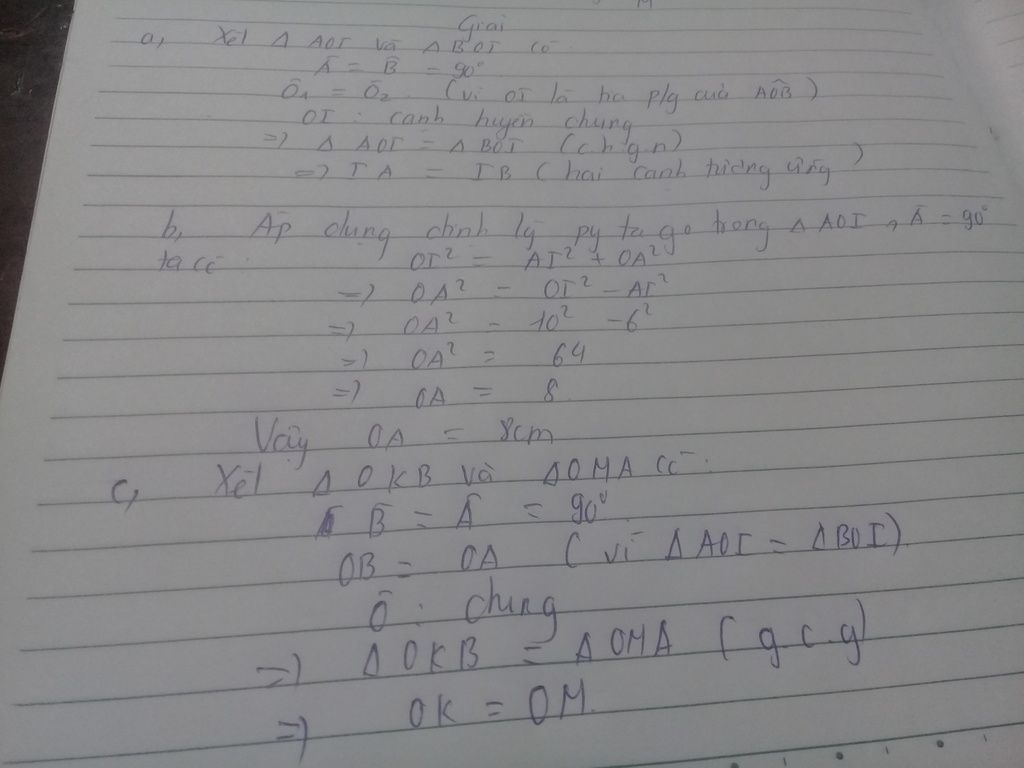 M
Giải
a, Xét Δ AOI và Δ BOI có
Â = B̂ = 90°
Ô1 = Ô2 (vì OI là tia p/g của AÔB)
OI : cạnh huyền chung
=> Δ AOI = Δ BOI (c h g n)
=> IA = IB (hai cạnh tương ứng)
b, Áp dụng định lý py ta go trong Δ AOI, Â = 90°
ta có OI² = AI² + OA²
=> OA² = OI² - AI²
=> OA² = 10² - 6²
=> OA² = 64
=> OA = 8
Vậy OA = 8cm
c, Xét Δ OKB và ΔOMA có:
B̂ = Â = 90°
OB = OA (vì Δ AOI = ΔBOI)
Ô : chung
=> Δ OKB = Δ OMA (g c g)
=> OK = OM.